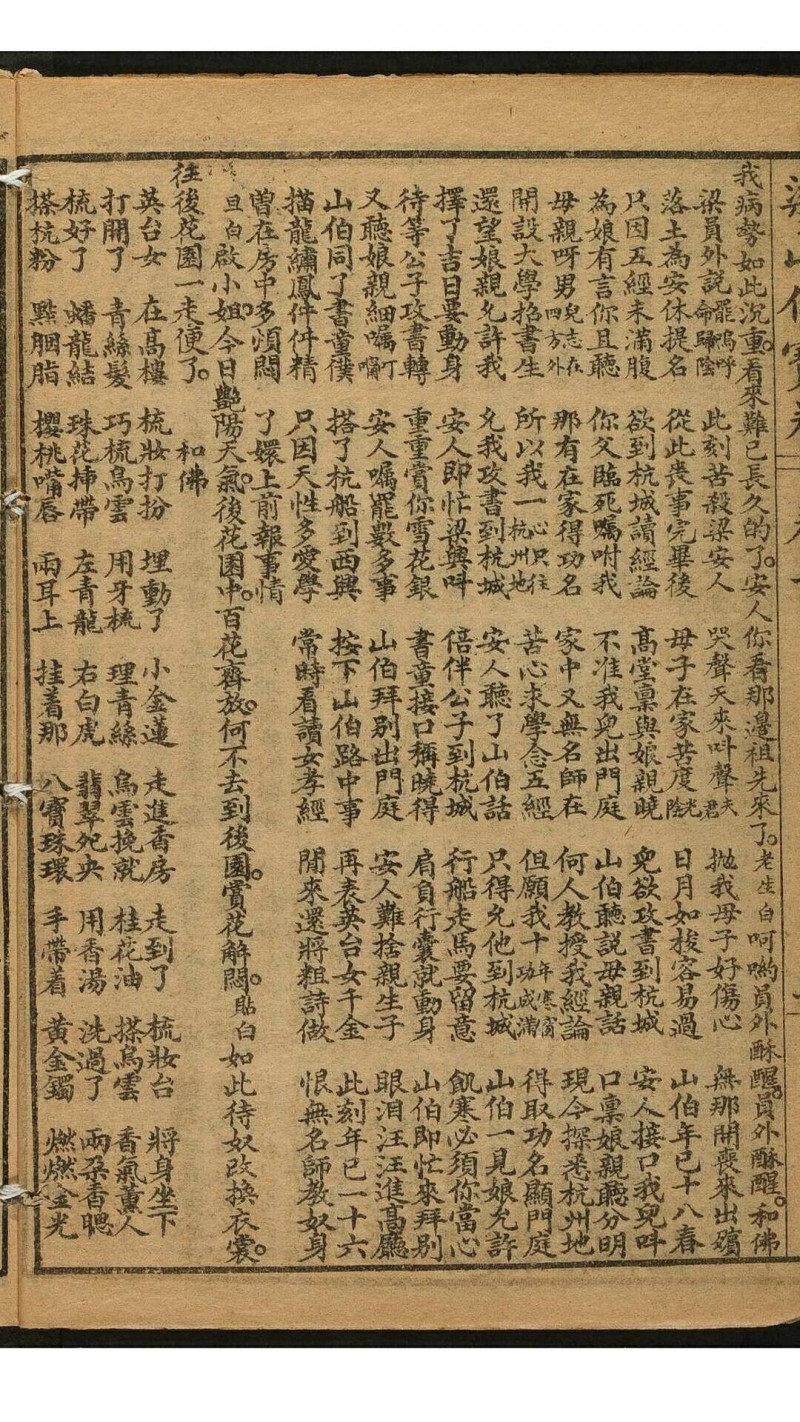 我病勢如此沉重。看來難已長久的了。安人你看那邊祖先來了。老生白呵喲員外酥醒。員外酥醒。和佛
梁員外說罷嗚呼命歸陰 此刻苦殺梁安人 哭聲天來呌聲夫君 拋我母子好傷心 無那開喪來出殯
落土為安休提名 從此喪事完畢後 母子在家苦度光陰 日月如梭容易過 山伯年已十八春
只因五經未滿腹 欲到杭城讀經論 高堂稟與娘親曉 兒欲攻書到杭城 安人接口我兒呌
為娘有言你且聽 你父臨死囑咐我 不准我兒出門庭 山伯聽說母親話 口稟娘親聽分明
母親呀男兒志在四方外 那有在家得功名 家中又無名師在 何人教授我經論 現今探悉杭州地
開設大學招書生 所以我一心只往杭州地 苦心求學念五經 但願我十年寒窗功成滿 得取功名顯門庭
還望娘親允許我 允我攻書到杭城 安人聽了山伯話 只得允他到杭城 山伯一見娘允許
擇了吉日要動身 安人即忙梁興呌 倍伴公子到杭城 行船走馬要留意 飢寒必須你當心
待等公子攻書轉 重重賞你雪花銀 書童接口稱曉得 肩負行囊就動身 山伯即忙來拜別
又聽娘親細囑叮嚀 安人囑罷數多事 山伯拜別出門庭 安人難捨親生子 眼泪汪汪進高廳
山伯同了書童僕 搭了杭船到西興 按下山伯路中事 再表英台女千金 此刻年已一十六
描龍繡鳳件件精 只因天性多愛學 常時看讀女孝經 閒來還將粗詩做 恨無名師教奴身
曾在房中多煩悶 了嬛上前報事情
旦白啟小姐今日艷陽天氣。後花園中。百花齊放。何不去到後園。賞花解悶。貼白如此待奴改換衣裳。
往後花園一走便了。 和佛
英台女 在高樓 梳妝打扮 埋動了 小金蓮 走進香房 走到了 梳妝台 將身坐下
打開了 青絲髮 巧梳烏雲 用牙梳 理青絲 烏雲挽就 桂花油 搽烏雲 香氣薰人
梳好了 蟠龍結 珠花揷帶 左青龍 右白虎 翡翠夗央 用香湯 洗過了 兩朶香腮
搽杭粉 點胭脂 櫻桃嘴唇 兩耳上 挂着那 八寶珠環 手帶着 黃金鐲 燃燃金光